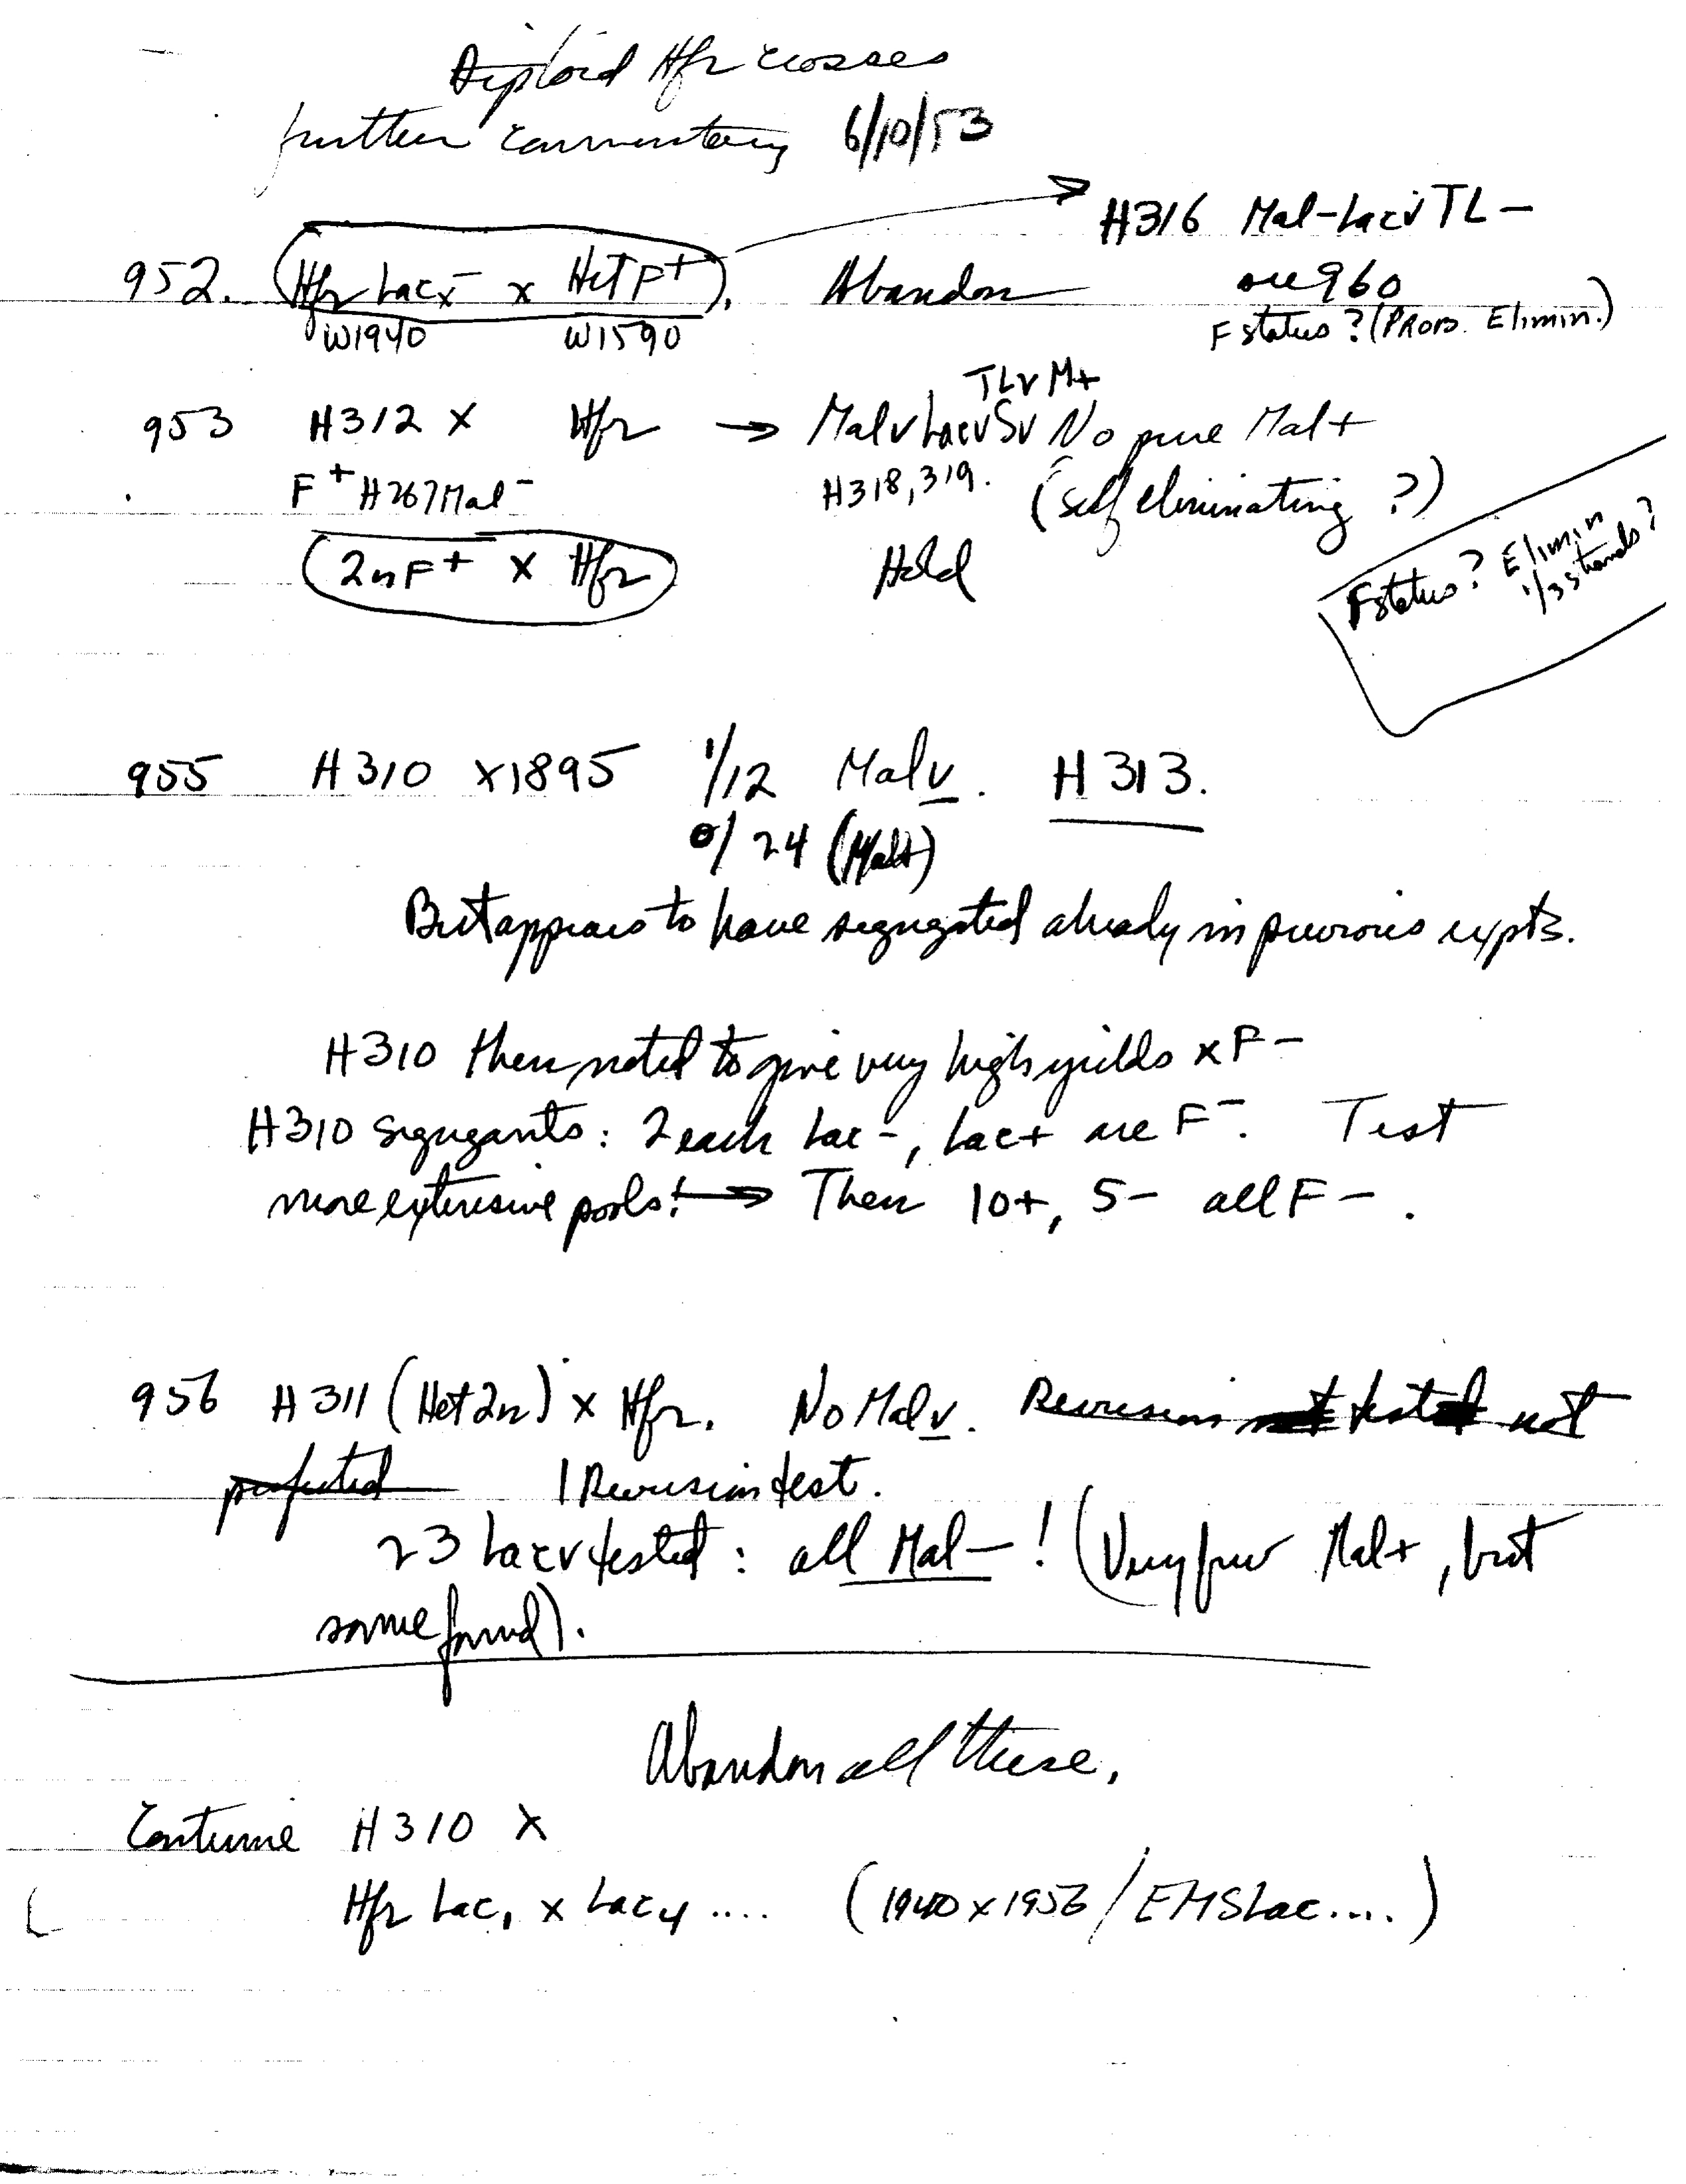 Diploid Hfr crosses
further commentary 6/10/53
H316 Mal-Lacv TL-
952. (Hfr Lacx- x Het F+). Abandon see 960
W1940 W1590 F status? (Prob. Elimin.)
TLv M+
953 H312 x Hfr → Malv Lacv Sv No pure Mal+
F+ H267 Mal- H318, 319. (self eliminating?)
(2nF+ x Hfr) Hold
F status? Elimin
1/3 strands?
955 H310 x1895 1/12 Malv. H313.
0/24 (Mal+)
But appears to have segregated already in previous expts.
H310 then noted to give very high yields x F-
H310 segregants: 2 each Lac-, Lac+ are F-. Test
more extensive pools! → Then 10+, 5- all F-.
956 H311 (Het 2n) x Hfr. No Malv. Reversion test not
perfected 1 Reversion test.
23 Lacv tested: all Mal-! (Very few Mal+, but
some found).
Abandon all these.
Continue H310 x
Hfr Lac1 x Lac4 .... (1940 x 1956 / EMS Lac....)